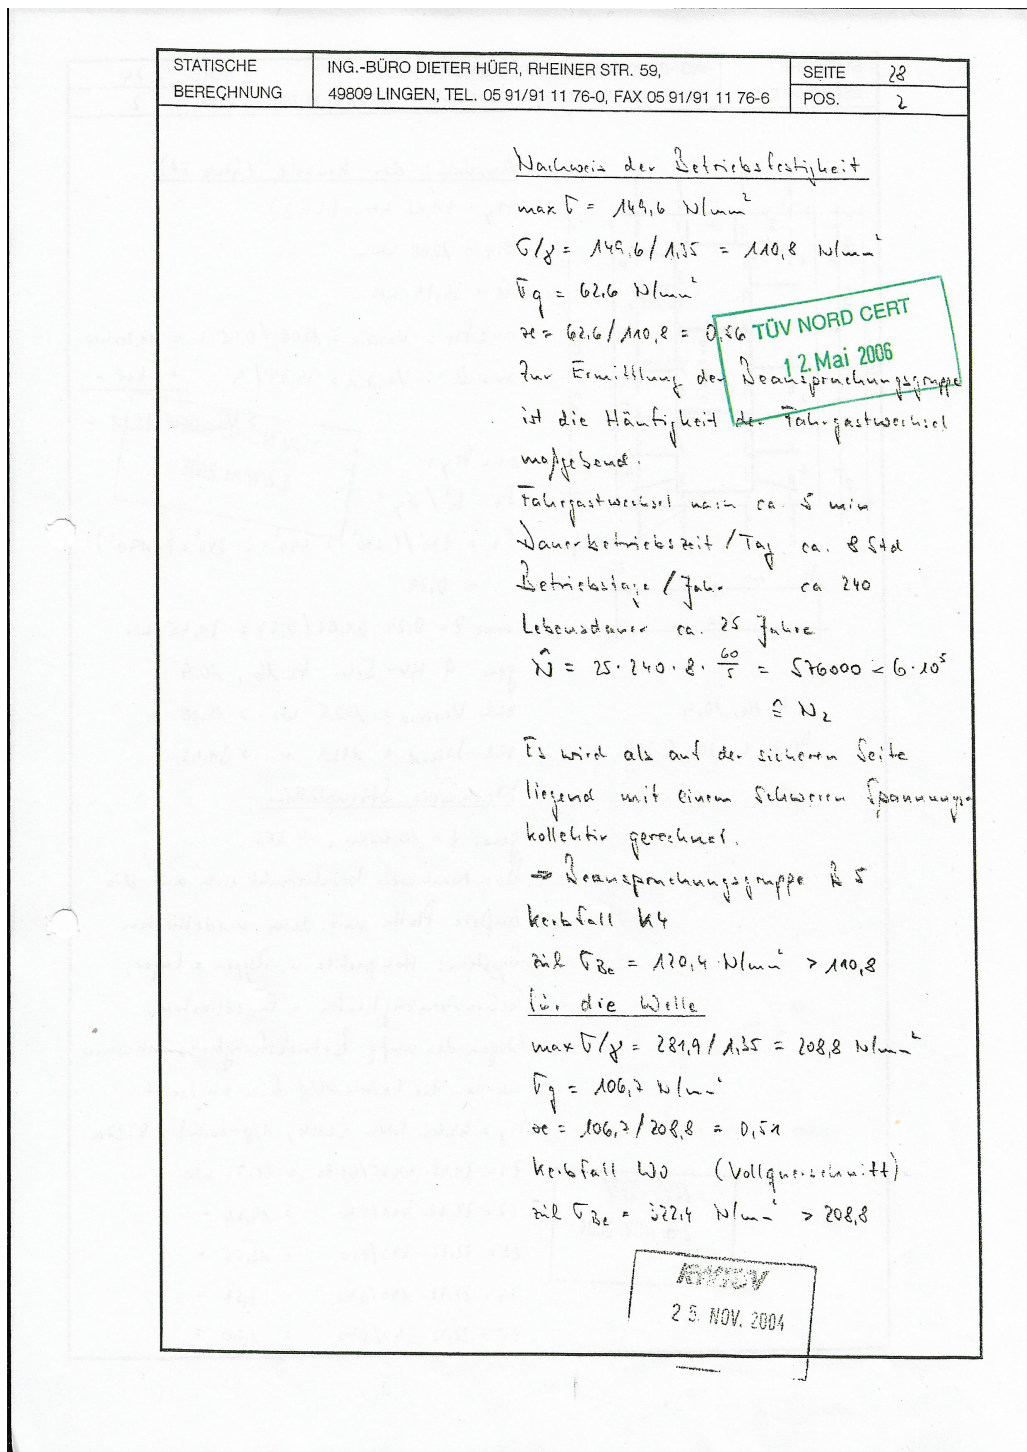 STATISCHE
BERECHNUNG
ING.-BÜRO DIETER HÜER, RHEINER STR. 59,
49809 LINGEN, TEL. 05 91/91 11 76-0, FAX 05 91/91 11 76-6
SEITE 28
POS. 2
Nachweis der Betriebsfestigkeit
max σ = 149,6 N/mm²
σ/γ = 149,6/1,35 = 110,8 N/mm²
σg = 62,6 N/mm²
æ = 62,6/110,8 = 0,56
TÜV NORD CERT
12. Mai 2006
Zur Ermittlung der Beanspruchungsgruppe
ist die Häufigkeit der Fahrgastwechsel
maßgebend.
Fahrgastwechsel nach ca. 5 min
Dauerbetriebszeit / Tag ca. 8 Std
Betriebstage / Jahr ca 240
Lebensdauer ca. 25 Jahre
N̂ = 25 · 240 · 8 · 60/5 = 576000 < 6 · 10⁵
≙ N₂
Es wird als auf der sicheren Seite
liegend mit einem schweren Spannungs-
kollektiv gerechnet.
⇒ Beanspruchungsgruppe B 5
Kerbfall K4
zul σBe = 120,4 N/mm² > 110,8
für die Welle
max σ/γ = 281,9/1,35 = 208,8 N/mm²
σg = 106,7 N/mm²
æ = 106,7/208,8 = 0,51
Kerbfall W0 (Vollquerschnitt)
zul σBe = 322,4 N/mm² > 208,8
RWTÜV
25. NOV. 2004